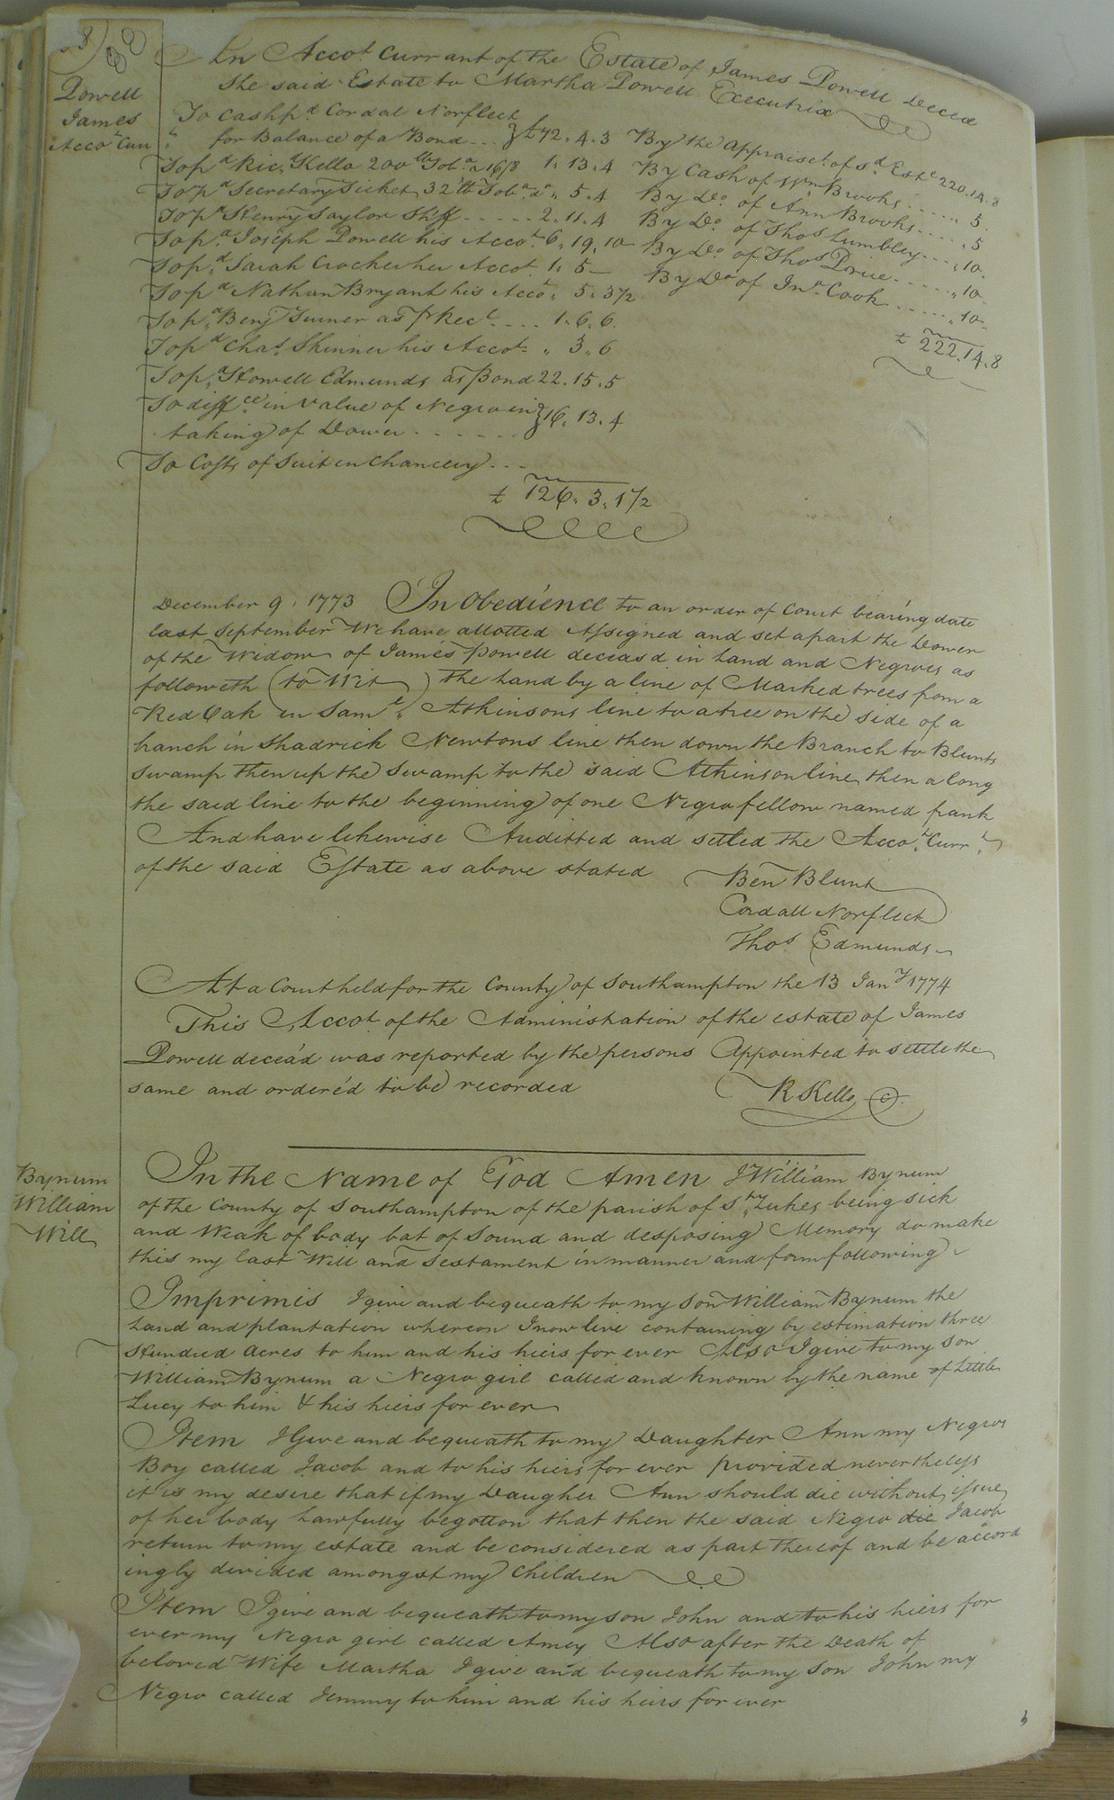 88
Powell
James
Acco.t Curr.t
In Acco.t Currant of the Estate of James Powell Deced
The said Estate to Martha Powell Executrix
To Cash p.d Cordal Norfleet
for Balance of a Bond } £72.4.3
To p.d Ric.d Kello 200 lb Tob.o a 16/8 1.13.4
To p.d Secretary Ticket 32 lb Tob.o d.o 5.4
To p.d Henry Taylor Shff 2.11.4
To p.d Joseph Powell his Acco.t 6.19.10
To p.d Sarah Crocker her Accot 1.5 —
To p.d Nathan Bryant his Acco.t 5.3½
To p.d Benj Turner as p Rec.t 1.6.6
To p.d Cha.s Skinner his Accot. 3.6
To p.d Howell Edmunds as p Bond 22.15.5
To diff.ce in Value of Negro in
taking of Dower } 16.13.4
To Costs of Suit in Chancery
£ 126.3.1½
By the Appraise.t of s.d Est.e 220.14.8
By Cash of Wm Brooks 5
By Do. of Ann Brooks 5
By Do. of Thos Lumbley 10
By Do. of Thos Price 10
By Do. of Jn.o Cook 10
£ 222.14.8
December 9. 1773 In Obedience to an order of Court bearing date
last September We have allotted Assigned and set apart the Dower
of the Widow of James Powell deceasd in Land and Negroes as
followeth (to Wit) the Land by a line of Marked trees from a
Red Oak in Sam.l Atkinsons line to a tree on the side of a
branch in Shadrick Newtons line then down the Branch to Blunts
Swamp then up the Swamp to the said Atkinson line then along
the said line to the beginning of one Negro fellow named frank
And have likewise Auditted and setled the Acco.t Curr.t
of the said Estate as above stated
Ben Blunt
Cordall Norfleet
Thos. Edmunds
At a Court held for the County of Southampton the 13 Jan.y 1774
This Accot. of the Administration of the estate of James
Powell decea'd was reported by the persons Appointed to settle the
same and ordere'd to be recorded
R Kello C
Bynum
William
Will
In the Name of God Amen I William Bynum
of the County of Southampton of the parish of S.t Lukes being sick
and Weak of body bat of Sound and desposing Memory do make
this my last Will and Testament in manner and form following
Imprimis I give and bequeath to my Son William Bynum the
Land and plantation whereon I now live containing by estimation three
Hundied acres to him and his heirs for ever Also I give to my son
William Bynum a Negro girl called and known by the name of Little
Lucy to him & his heirs for ever
Item I Give and bequeath to my Daughter Ann my Negroe
Boy called Jacob and to his heirs for ever provided nevertheless
it is my desire that if my Daugher Ann should die without issue
of her body Lawfully begotton that then the said Negro die Jacob
return to my estate and be considered as part thereof and be accord
ingly divided amongst my Children
Item I give and bequeath to my son John and to his heirs for
ever my Negro girl called Amey Also after the Death of
beloved Wife Martha I give and bequeath to my Son John my
Negro called Jemmy to him and his heirs for ever